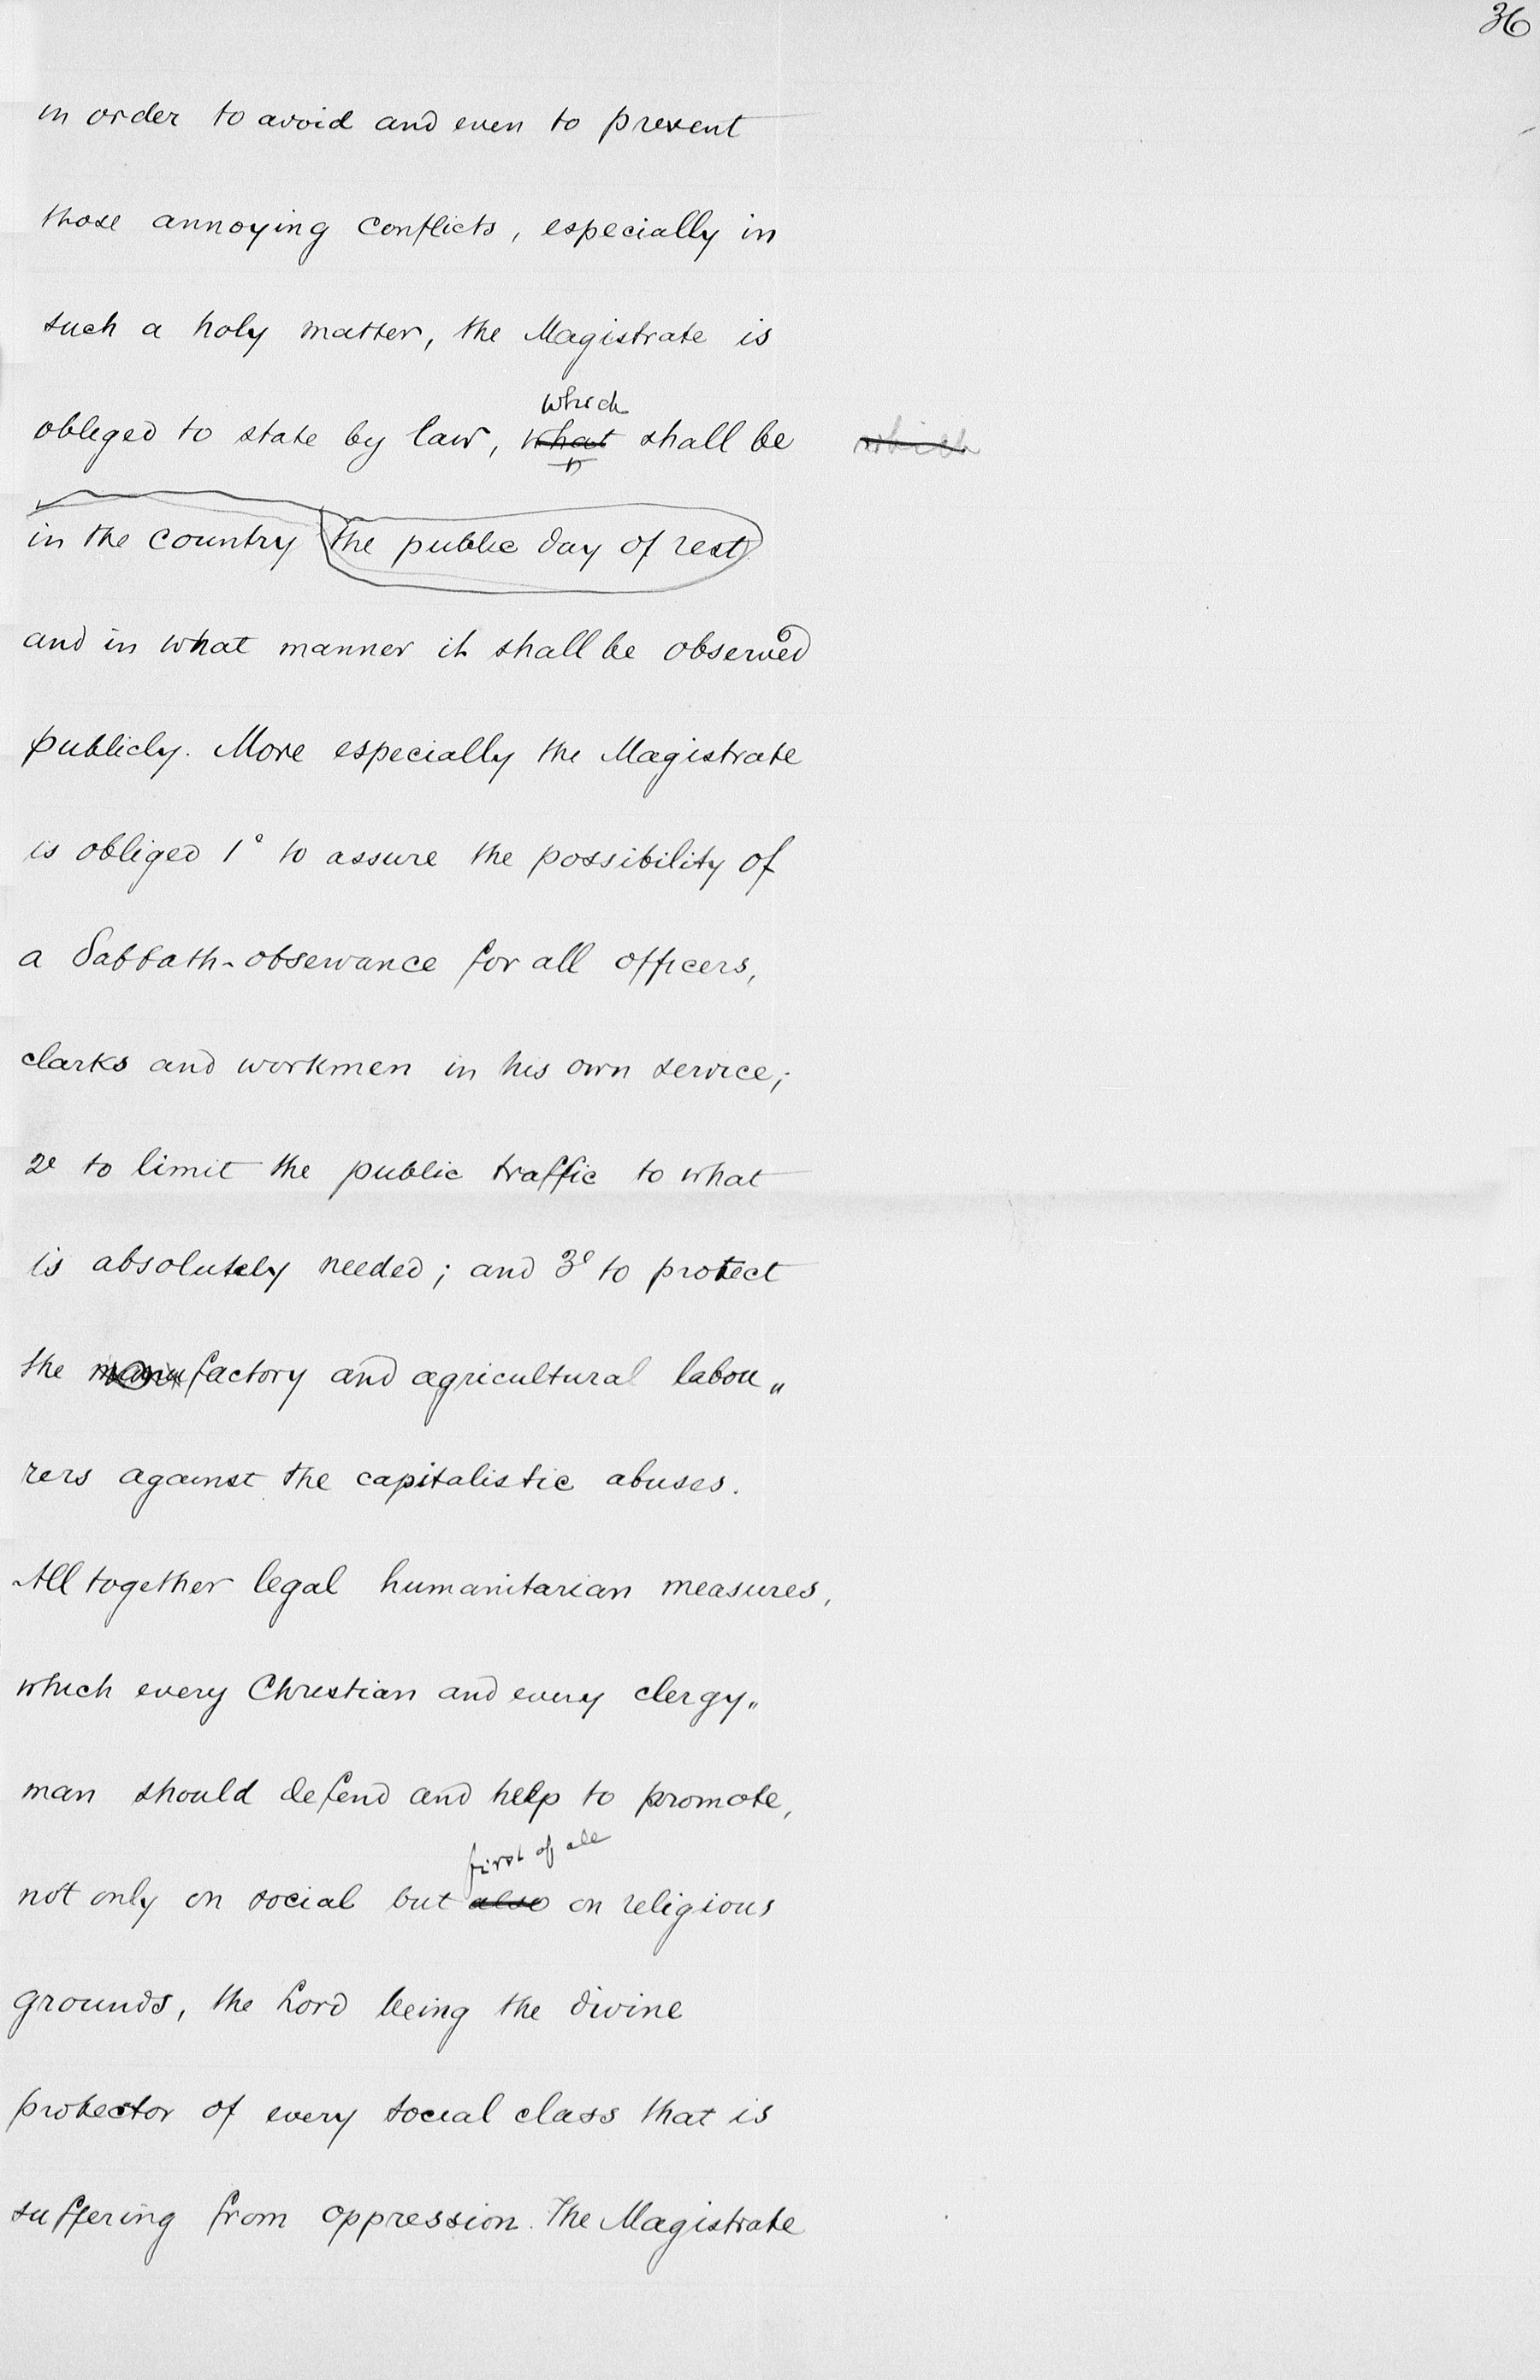 36
in order to avoid and even to prevent
those annoying conflicts, especially in
such a holy matter, the Magistrate is
which
obliged to state by law, what shall be which
in the country the public day of rest
and in what manner it shall be observed
publicly. More especially the Magistrate
is obliged 1° to assure the possibility of
a Sabbath-observance for all officers,
clarks and workmen in his own service;
2e to limit the public traffic to what
is absolutely needed; and 3e to protect
the manufactory and agricultural labou„
rers against the capitalistic abuses.
All together legal humanitarian measures,
which every Christian and every clergy„
man should defend and help to promote,
first of all
not only on social but also on religious
grounds, the Lord being the divine
protector of every social class that is
suffering from oppression. The Magistrate